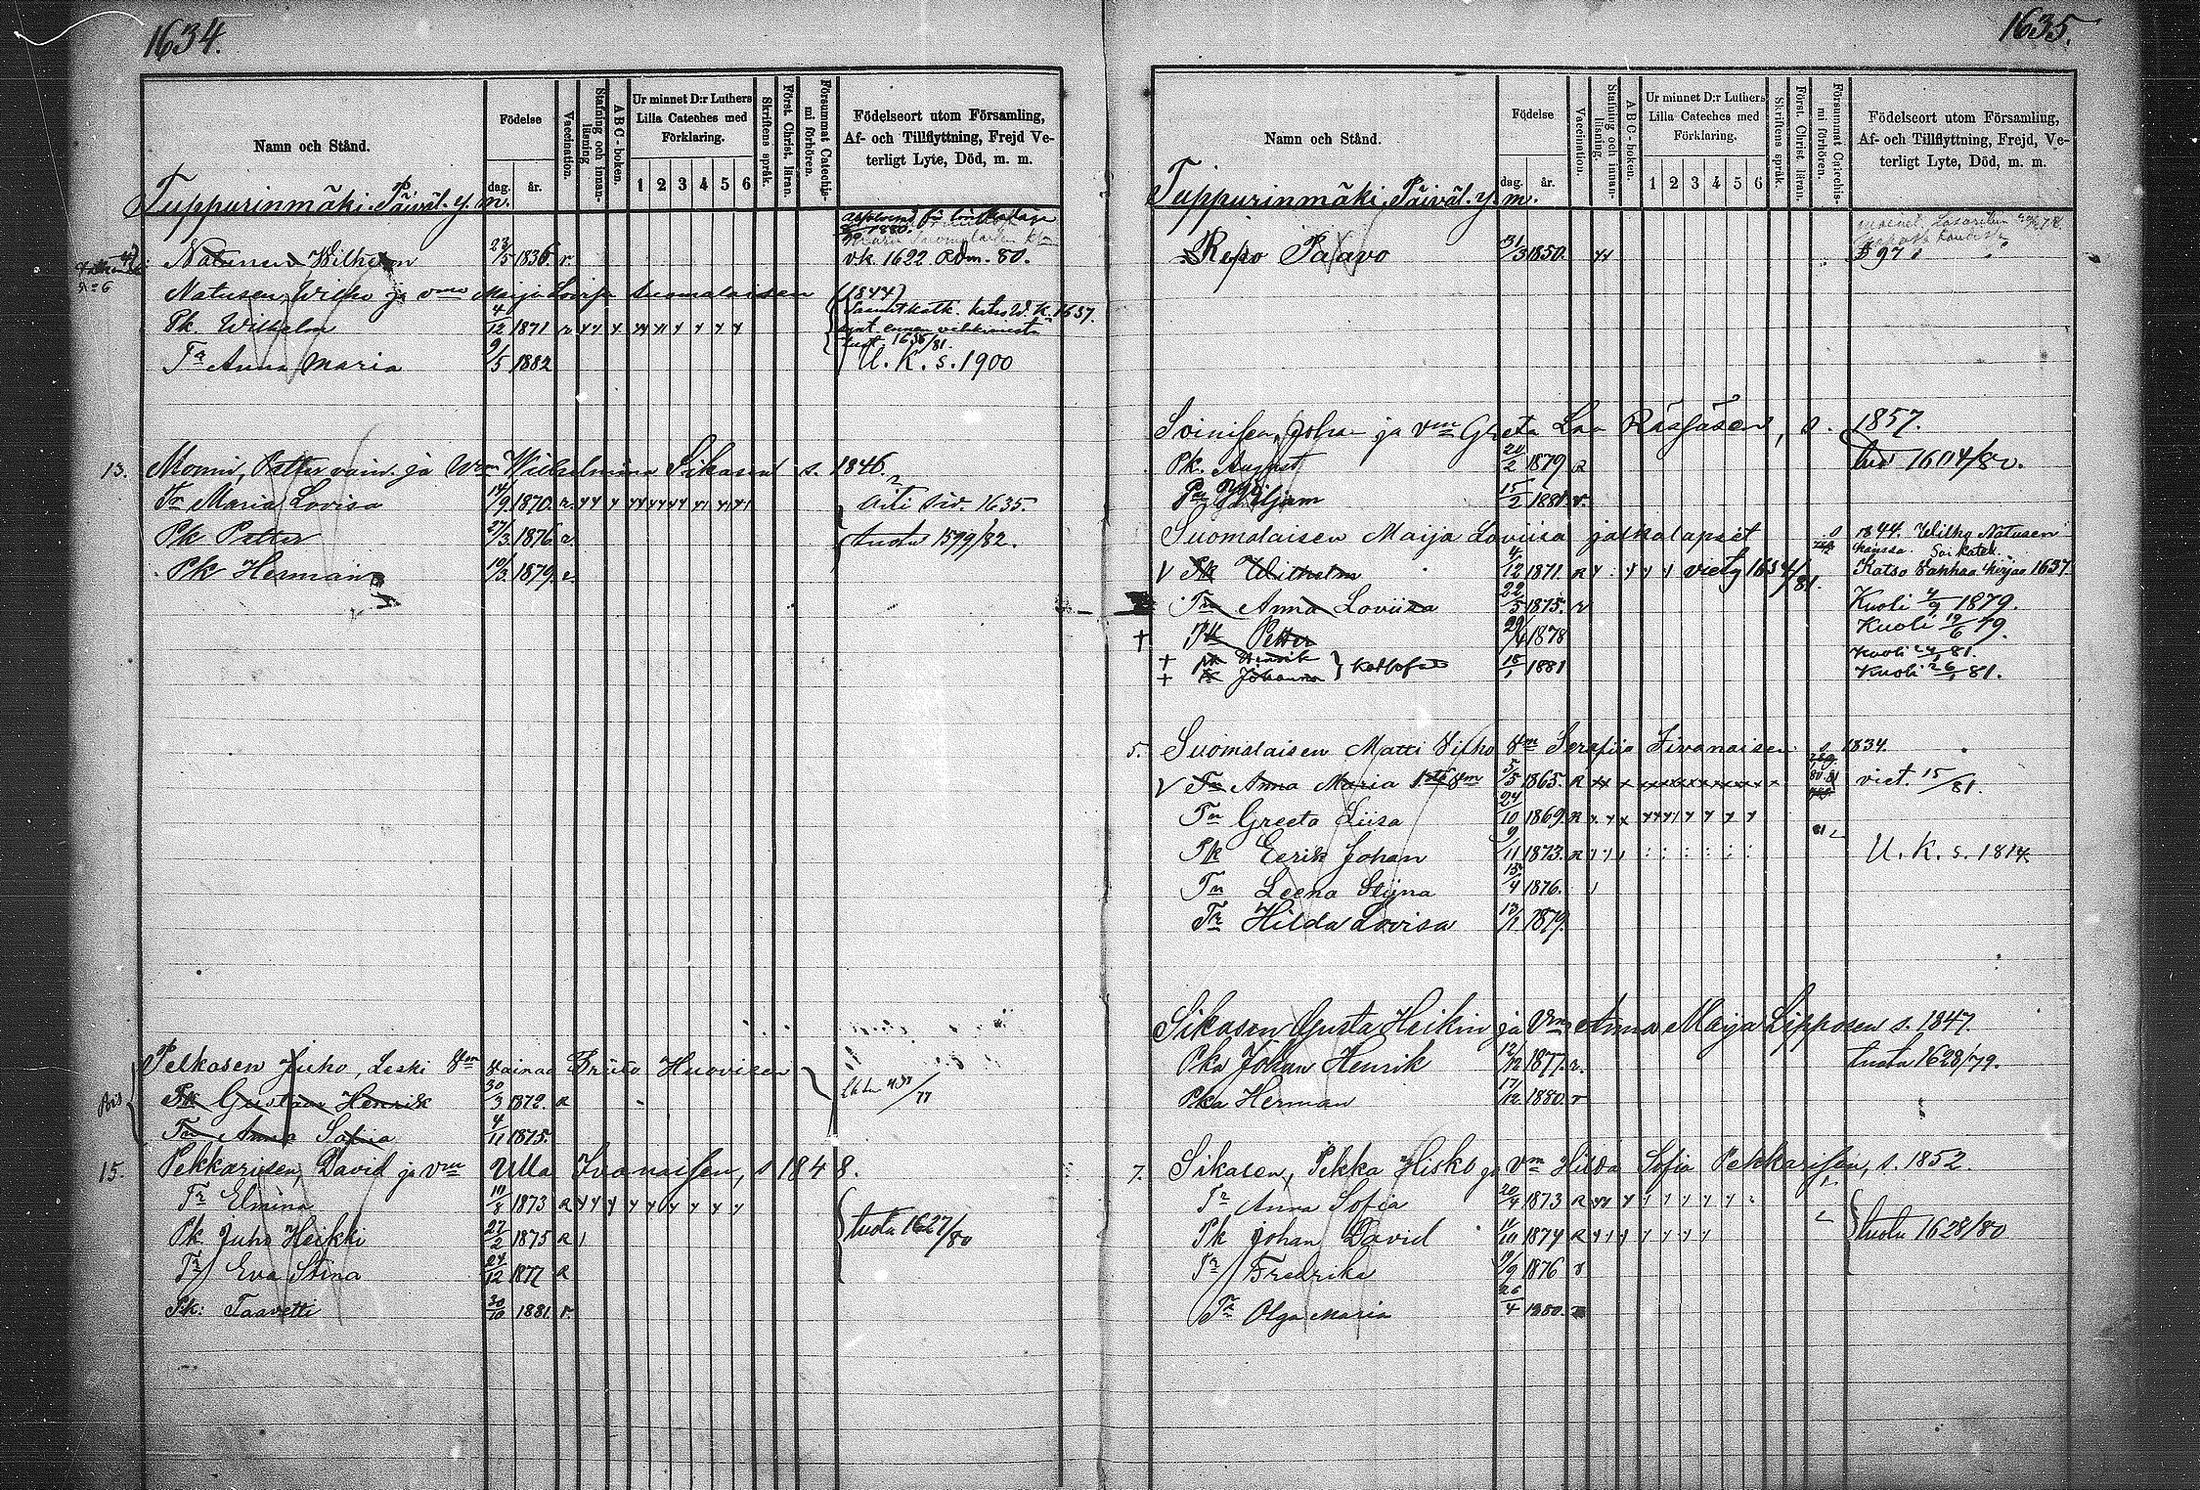 1634.
Namn och Stånd.
Födelse
dag. år.
Vaccination.
Stafning och innanläsning
ABC-boken.
Ur minnet D:r Luthers
Lilla Cateches med
Förklaring.
1 2 3 4 5 6
Skriftens språk.
Först. Christ. läran.
Försummat Catechismi förhören.
Födelseort utom Församling,
Af- och Tillflyttning, Frejd Ve-
terligt Lyte, Död, m. m.
Tuppurinmäki. Päiväl. y. m.
Natunen Wilhelm 23/5 1836. r. vk. 1622. Adm. 80.
Natusen, Wilho ja vmo Maija Lovisa Suomalaisen (1844)
Pk. Wilhelm 4/12 1871 r 1637.
1635/81.
Tr Anna Maria 9/5 1882 U. K. s. 1900
13. Petter vain. ja Wm Wilhelmina Sikasen s. 1846.
Tr Maria Lovisa 14/9 1870. r. Äiti siv. 1635.
Pk Petter 27/3 1876. r. tuotu 1599/82.
Pk Herman 10/3 1879. r.
Pelkosen Juho, Leski Vm vainaa Huovisen
Pk Gustaav Henrik 30/3 1872. R /77
Tr Anna Sofiia 4/11 1875.
15. Pekkarisen, David ja vm Ulla Ivonaisen, s 1848.
Tr Elmina 10/8 1873 R
Pk Juho Heikki 27/2 1875 R tuotu 1627/80
Tr Eva Stina 24/12 1877 R
Pk: Taavetti 30/10 1881. r.
1635.
Namn och Stånd.
Födelse
dag. år.
Vaccination.
Stafning och innanläsning.
ABC-boken.
Ur minnet D:r Luthers
Lilla Cateches med
Förklaring.
1 2 3 4 5 6
Skriftens språk.
Först. Christ. läran.
Försummat Catechismi förhören.
Födelseort utom Församling,
Af- och Tillflyttning, Frejd, Ve-
terligt Lyte, Död, m. m.
Tuppurinmäki. Päiväl. y. m.
Repo Paavo 31/3 1850.
Soinisen, Johan ja Vm Greta Räsäsen, s. 1857.
Pk. August 20/2 1879 R 1604/80.
Viljam 15/2 1881. r.
Suomalaisen Maija Loviisa jalkalapset s 1844. Wilho Natusen
kanssa.
V Pk Wilhelm 4/12 1871. R viety 1634/81. Katso vanhaa kirjaa 1637.
Tr Anna Loviisa 22/5 1875. r Kuoli 4/9 1879.
+ Pk Petter 29/4 1878 Kuoli 19/6 79.
+ Pk Henrik Kuoli 24/1 81.
+ Tr Johanna } kaksoset 18/1 1881 Kuoli 26/1 81.
5. Suomalaisen Matti Vilho Vm Serafiia Iivanaisen s. 1834.
V Tr Anna Maria 5/5 1865. R viet. 15/81.
Tr Greeta Liisa 24/10 1869. R
Pk Eerik Johan 9/11 1873. R U. K. s. 1814
Tr Leena Stiina 15/4 1876.
Tr Hilda Lovisa 13/1 1879.
Sikasen Gusta Heikin ja Vm Anna Maija Lipposen s. 1847.
Pka Johan Henrik 12/12 1877. r. tuotu 1628/79.
Pka Herman 17/12 1880. r
7. Sikasen, Pekka Hisko ja Vm Hilda Sofia Pekkarisen, s. 1852.
Tr Anna Sofia 20/4 1873 R
Pk Johan David 11/10 1874 R tuotu 1628/80
Tr Fredrika 19/9 1876 r
Tr Olga Maria 26/4 1880.